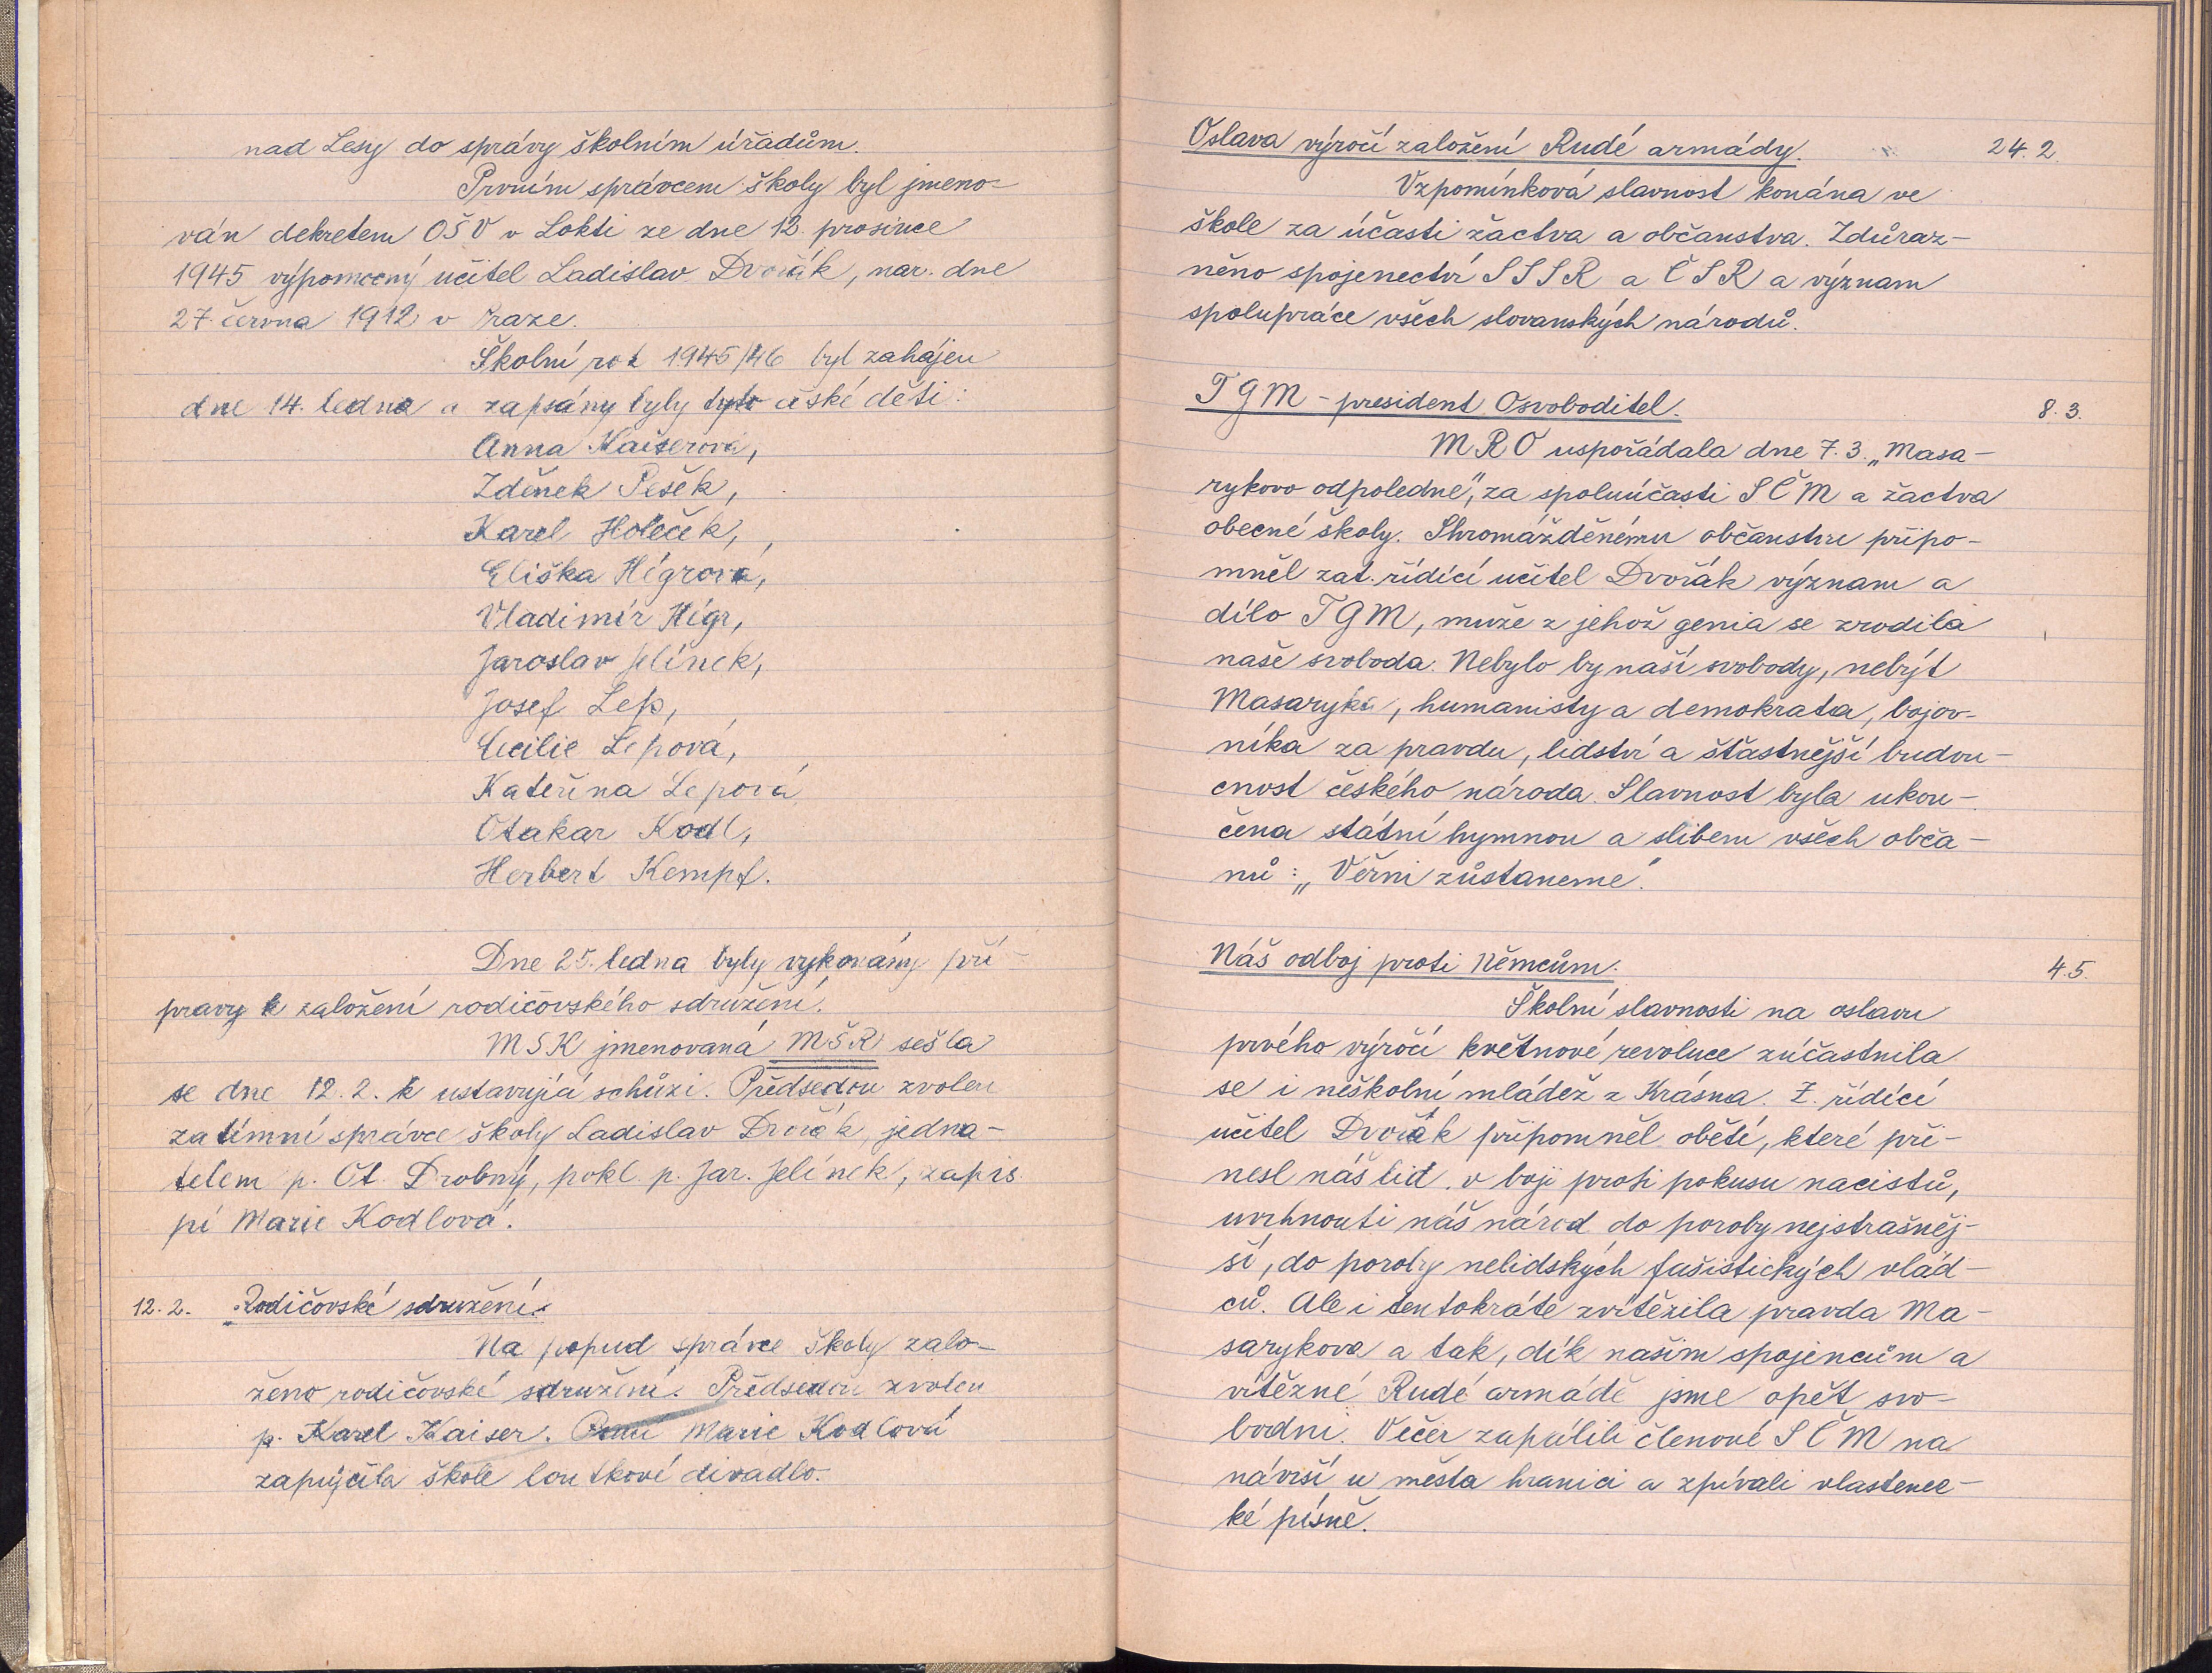 nad Lesy do správy školním úřadům.
Prvním správcem školy byl jmeno-
ván dekretem OŠV v Lokti ze dne 12. prosince
1945 výpomocný učitel Ladislav Dvořák, nar. dne
27. června 1912 v Praze.
Školní rok 1945/46 byl zahájen
dne 14. ledna a zapsány byly tyto české děti:
Anna Kaiserová,
Zdeněk Pešek,
Karel Holeček,
Eliška Hígrova,
Vladimír Hígr,
Jaroslav Jelínek,
Josef Lep,
Cecilie Lepová,
Kateřina Lepová,
Otakar Kodl,
Herbert Kempf.
Dne 25. ledna byly vykonány pří-
pravy k založení rodičovského sdružení.
MSK jmenovaná MŠR sešla
se dne 12. 2. k ustavující schůzi. Předsedou zvolen
zatímní správce školy Ladislav Dvořák, jedna-
telem p. Ot. Drobný, pokl. p. Jar. Jelínek, zapis.
pí Marie Kodlová.
12. 2. Rodičovské sdružení.
Na popud správce školy zalo-
ženo rodičovské sdružení. Předsedou zvolen
p. Karel Kaiser. Paní Marie Kodlová
zapůjčila škole loutkové divadlo.
Oslava výročí založení Rudé armády. 24. 2.
Vzpomínková slavnost konána ve
škole za účasti žactva a občanstva. Zdůraz-
něno spojenectví SSSR a ČSR a význam
spolupráce všech slovanských národů.
TGM - president Osvoboditel. 8. 3.
MRO uspořádala dne 7. 3. „Masa-
rykovo odpoledne", za spoluúčasti SČM a žactva
obecné školy. Shromážděnému občanstvu připo-
mněl zat. řídící učitel Dvořák význam a
dílo TGM, muže z jehož genia se zrodila
naše svoboda. Nebylo by naší svobody, nebýt
Masaryka, humanisty a demokrata, bojov-
níka za pravdu, lidství a šťastnější budou-
cnost českého národa. Slavnost byla ukon-
čena státní hymnou a slibem všech obča-
nů: „Věrni zůstaneme".
Náš odboj proti Němcům. 4. 5.
Školní slavnosti na oslavu
prvého výročí květnové revoluce zúčastnila
se i neškolní mládež z Krásna. Z. řídící
učitel Dvořák připomněl oběti, které při-
nesl náš lid v boji proti pokusu nacistů,
uvrhnouti náš národ do poroby nejstrašněj-
ší, do poroby nelidských fašistických vlád-
ců. Ale i tentokráte zvítězila pravda Ma-
sarykova a tak, dík našim spojencům a
vítězné Rudé armádě jsme opět svo-
bodni. Večer zapálili členové SČM na
návrší u města hranici a zpívali vlastenec-
ké písně.